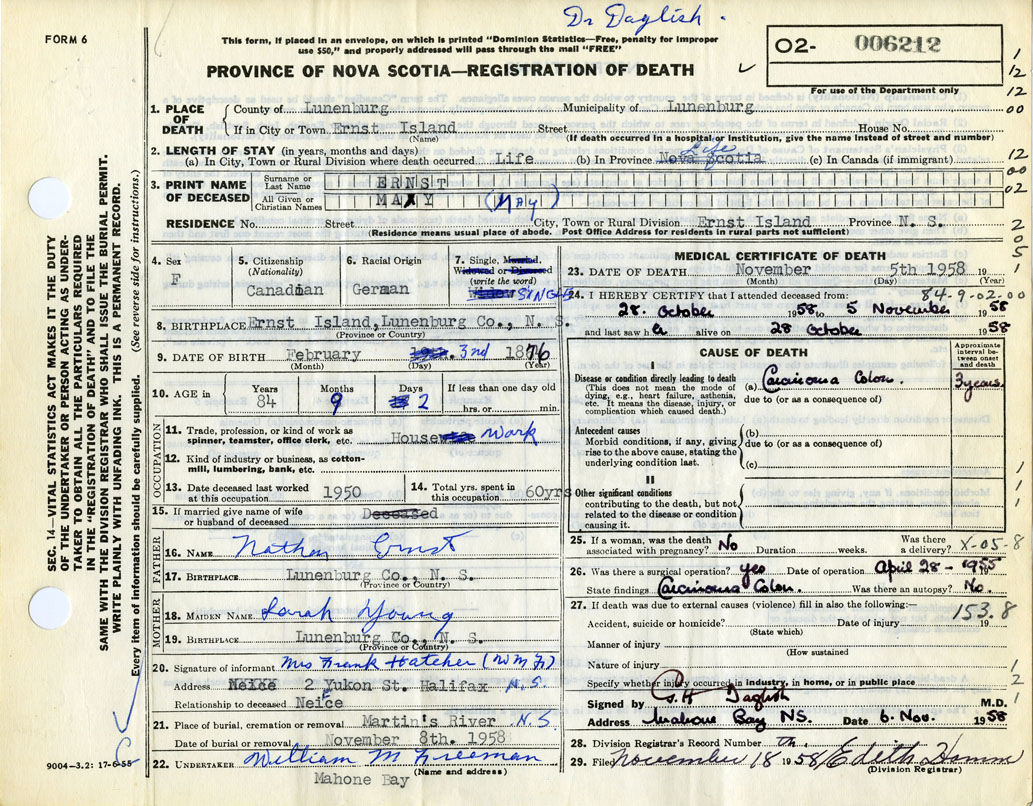 Dr Daglish.
FORM 6
This form, if placed in an envelope, on which is printed "Dominion Statistics—Free, penalty for improper
use $50," and properly addressed will pass through the mail "FREE"
O2- 006212
PROVINCE OF NOVA SCOTIA—REGISTRATION OF DEATH ✓
For use of the Department only
1. PLACE OF DEATH
County of Lunenburg Municipality of Lunenburg
If in City or Town Ernst Island Street House No.
(Name) (If death occurred in a hospital or institution, give the name instead of street and number)
2. LENGTH OF STAY (in years, months and days)
(a) In City, Town or Rural Division where death occurred Life (b) In Province Nova Scotia Life (c) In Canada (if immigrant)
3. PRINT NAME OF DECEASED
Surname or Last Name ERNST
All Given or Christian Names MAXY (MAY)
RESIDENCE No. Street City, Town or Rural Division Ernst Island Province N. S.
(Residence means usual place of abode. Post Office Address for residents in rural parts not sufficient)
4. Sex
F
5. Citizenship
(Nationality)
Canadian
6. Racial Origin
German
7. Single, Married,
Widowed or Divorced
(write the word)
SINGLE
8. BIRTHPLACE Ernst Island, Lunenburg Co., N. S.
(Province or Country)
9. DATE OF BIRTH February 3rd 1876
(Month) (Day) (Year)
10. AGE in
Years Months Days If less than one day old
84 9 2 hrs. or min.
OCCUPATION
11. Trade, profession, or kind of work as
spinner, teamster, office clerk, etc. House Work
12. Kind of industry or business, as cotton-
mill, lumbering, bank, etc.
13. Date deceased last worked
at this occupation 1950
14. Total yrs. spent in
this occupation 60yrs
15. If married give name of wife
or husband of deceased Deceased
FATHER
16. NAME Nathan Ernst
17. BIRTHPLACE Lunenburg Co., N. S.
(Province or Country)
MOTHER
18. MAIDEN NAME Sarah Young
19. BIRTHPLACE Lunenburg Co., N. S.
(Province or Country)
20. Signature of informant Mrs Frank Hatcher (W M F)
Address Neice 2 Yukon St. Halifax N.S.
Relationship to deceased Neice
21. Place of burial, cremation or removal Martin's River N.S
Date of burial or removal November 8th. 1958
22. UNDERTAKER William M Freeman
(Name and address)
Mahone Bay
MEDICAL CERTIFICATE OF DEATH
23. DATE OF DEATH November 5th 1958 19
(Month) (Day) (Year)
84-9-02-00
24. I HEREBY CERTIFY that I attended deceased from:
28. October 1958 to 5 November 1958
and last saw her alive on 28 October 1958
CAUSE OF DEATH
Approximate
interval be-
tween onset
and death
I
Disease or condition directly leading to death
(This does not mean the mode of
dying, e.g., heart failure, asthenia,
etc. It means the disease, injury, or
complication which caused death.)
(a) Carcinoma Colon. 3 years.
due to (or as a consequence of)
Antecedent causes
Morbid conditions, if any, giving
rise to the above cause, stating the
underlying condition last.
(b)
due to (or as a consequence of)
(c)
II
Other significant conditions
contributing to the death, but not
related to the disease or condition
causing it.
25. If a woman, was the death
associated with pregnancy? No Duration weeks. Was there
a delivery? X-05-8
26. Was there a surgical operation? yes Date of operation April 28 - 1955
State findings Carcinoma Colon. Was there an autopsy? No.
27. If death was due to external causes (violence) fill in also the following:—
Accident, suicide or homicide? Date of injury 19
(State which)
153.8
Manner of injury
(How sustained
Nature of injury
Specify whether injury occurred in industry, in home, or in public place
Signed by Daglish M.D.
Address Mahone Bay NS. Date 6. Nov. 1958
28. Division Registrar's Record Number
29. Filed November 18 1958 Edith
(Division Registrar)
SEC. 14—VITAL STATISTICS ACT MAKES IT THE DUTY
OF THE UNDERTAKER OR PERSON ACTING AS UNDER-
TAKER TO OBTAIN ALL THE PARTICULARS REQUIRED
IN THE "REGISTRATION OF DEATH" AND TO FILE THE
SAME WITH THE DIVISION REGISTRAR WHO SHALL ISSUE THE BURIAL PERMIT.
WRITE PLAINLY WITH UNFADING INK. THIS IS A PERMANENT RECORD.
Every item of information should be carefully supplied. (See reverse side for instructions.)
9004-3.2: 17-6-55
1
12
12
00
12
00
02
2
0
5
1
1
1
1
1
2
1